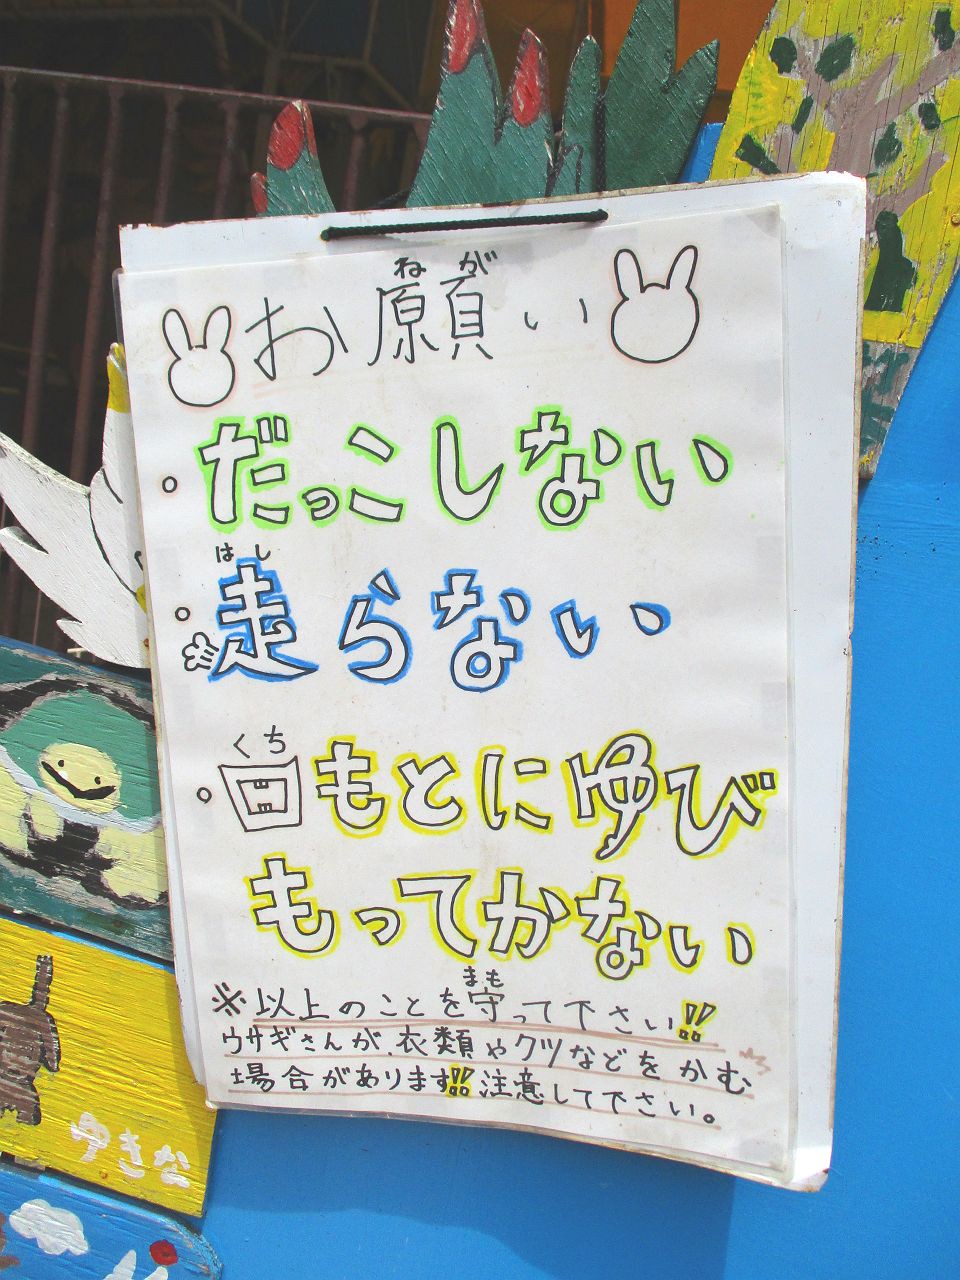 お願い
ねが
・だっこしない
はし
・走らない
くち
・口もとにゆび
もってかない
まも
※以上のことを守って下さい!!
ウサギさんが、衣類やクツなどをかむ
場合があります!!注意して下さい。
ゆきな